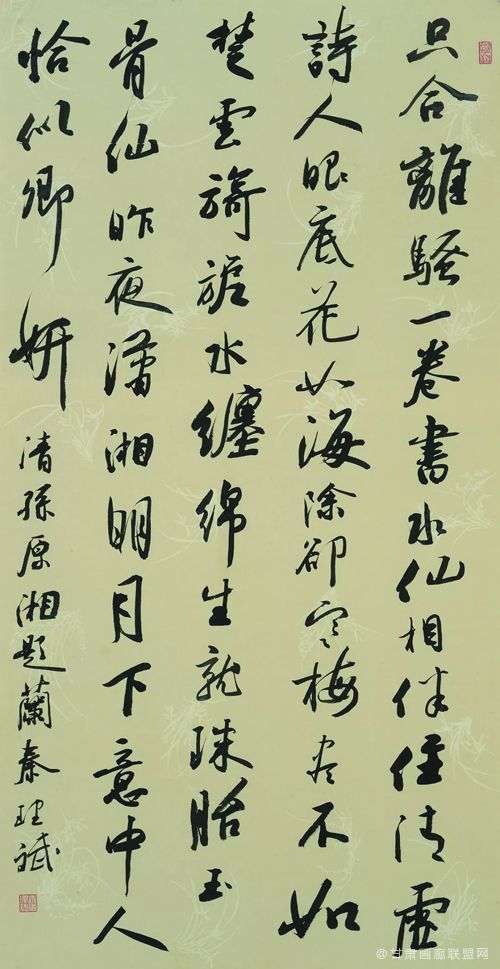 只合離騷一卷書水仙相伴住清虛
詩人眼底花如海除卻寒梅盡不如
楚雲旖旎水纏綿生就珠胎玉
骨仙昨夜瀟湘明月下意中人
恰似卿妍
清孫原湘題蘭秦理斌
@甘肃画廊联盟网